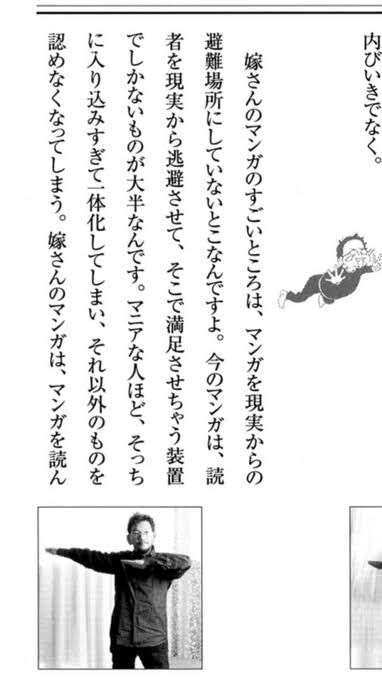 内びいきでなく。
嫁さんのマンガのすごいところは、マンガを現実からの
避難場所にしていないとこなんですよ。今のマンガは、読
者を現実から逃避させて、そこで満足させちゃう装置
でしかないものが大半なんです。マニアな人ほど、そっち
に入り込みすぎて一体化してしまい、それ以外のものを
認めなくなってしまう。嫁さんのマンガは、マンガを読ん